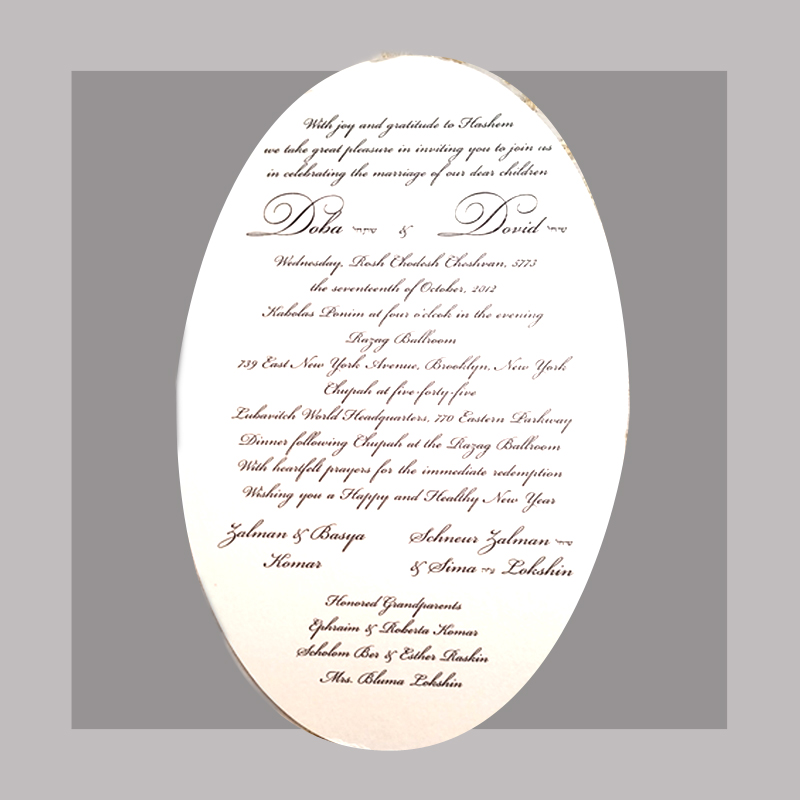 With joy and gratitude to Hashem
we take great pleasure in inviting you to join us
in celebrating the marriage of our dear children
Doba & Dovid
Wednesday, Rosh Chodesh Cheshvan, 5773
the seventeenth of October, 2012
Kabolas Ponim at four o'clock in the evening
Razag Ballroom
739 East New York Avenue, Brooklyn, New York
Chupah at five-forty-five
Lubavitch World Headquarters, 770 Eastern Parkway
Dinner following Chupah at the Razag Ballroom
With heartfelt prayers for the immediate redemption
Wishing you a Happy and Healthy New Year
Zalman & Basya
Komar
Schneur Zalman
& Sima Lokshin
Honored Grandparents
Ephraim & Roberta Komar
Scholom Ber & Esther Raskin
Mrs. Bluma Lokshin